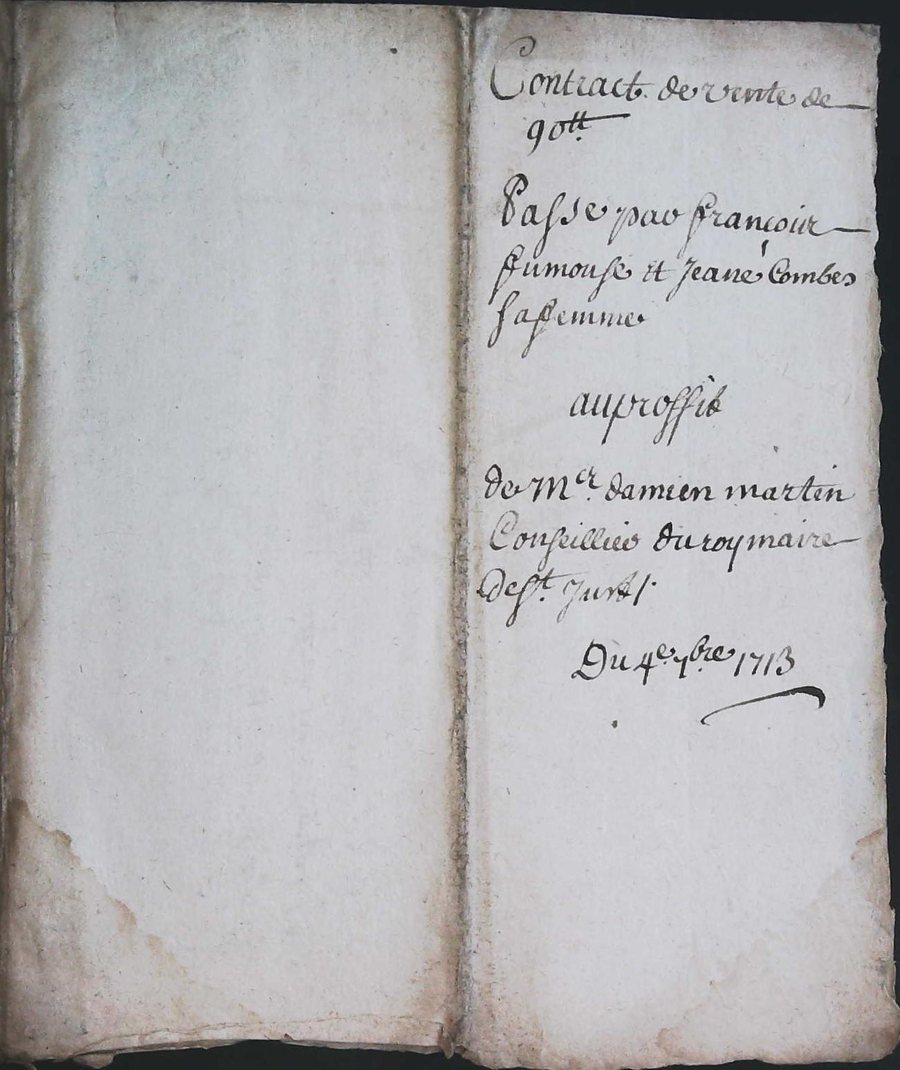 Contract de vente de
90tt
Passe par françois
fumouse et Jeane Combes
sa femme
au proffit
de Mer. damien martin
Conseillier du roy maire
de st.
Du 4e 7bre 1713